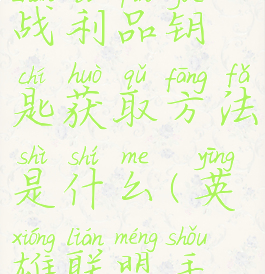 战利品钥
chí huò qǔ fāng fǎ
匙获取方法
shì shí me yīng
是什么(英
xióng lián méng shǒu
雄联盟手